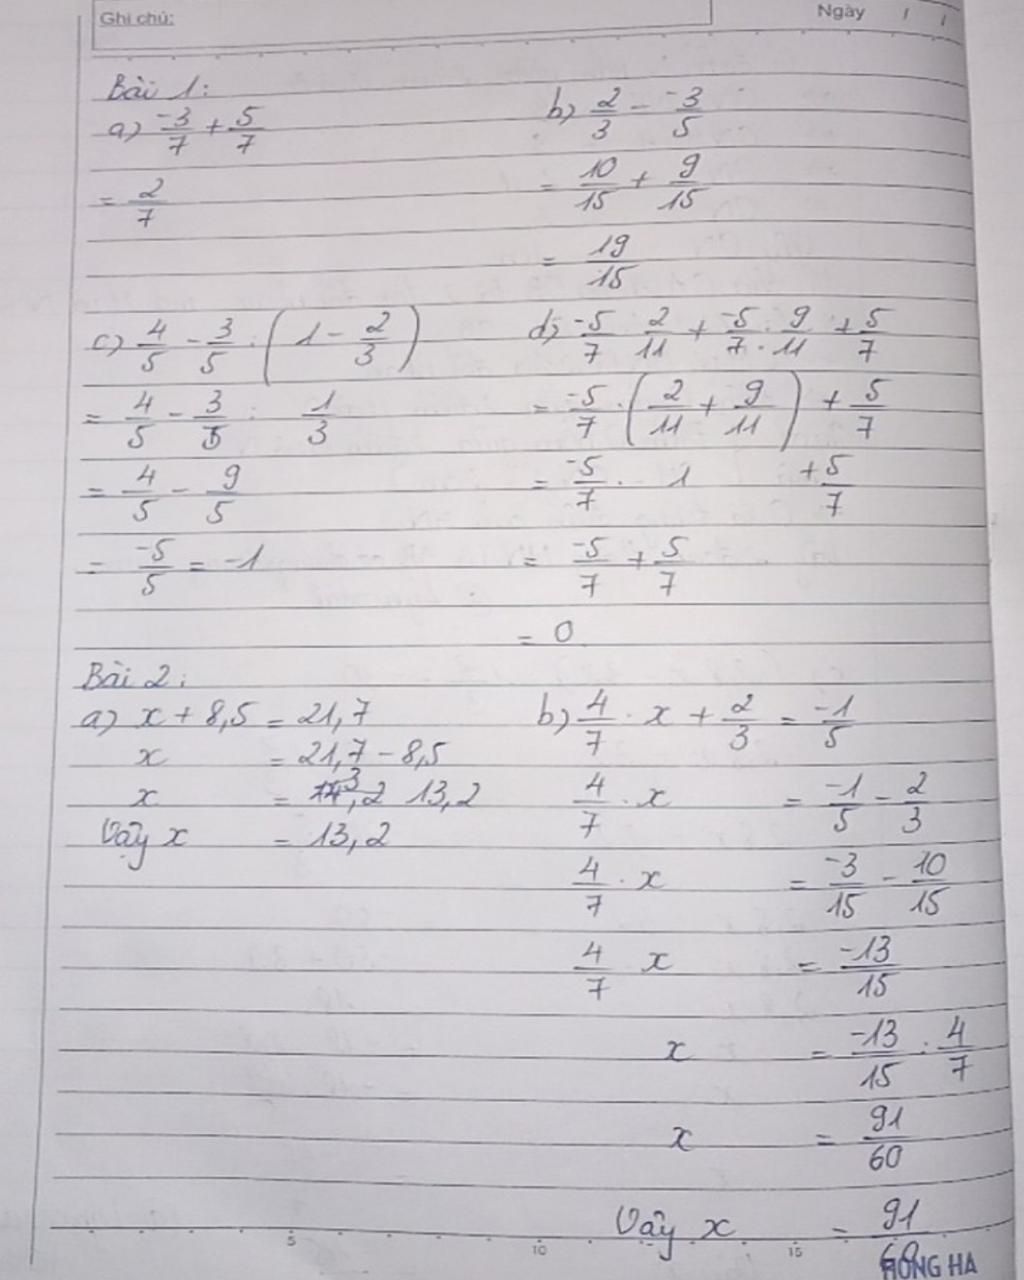 Ghi chú:
Ngày / /
Bài 1:
a) -3/7 + 5/7
= 2/7
b) 2/3 - -3/5
= 10/15 + 9/15
= 19/15
c) 4/5 - 3/5 : (1 - 2/3)
= 4/5 - 3/5 : 1/3
= 4/5 - 9/5
= -5/5 = -1
d) -5/7 . 2/11 + -5/7 . 9/11 + 5/7
= -5/7 . (2/11 + 9/11) + 5/7
= -5/7 . 1 + 5/7
= -5/7 + 5/7
= 0
Bài 2:
a) x + 8,5 = 21,7
x = 21,7 - 8,5
x = 13,2
Vậy x = 13,2
b) 4/7 . x + 2/3 = -1/5
4/7 . x = -1/5 - 2/3
4/7 . x = -3/15 - 10/15
4/7 . x = -13/15
x = -13/15 : 4/7
x = 91/60
Vậy x = 91/60
5 10 15
HONG HA